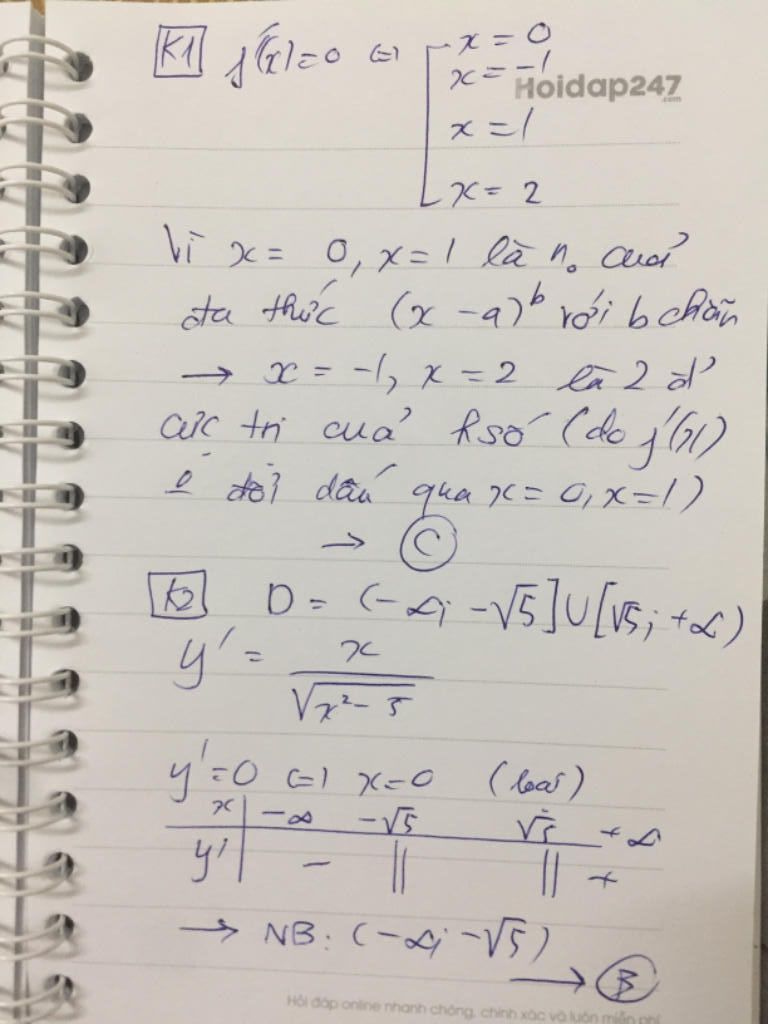 K1 f'(x)=0 ⇔ [ x = 0
x = -1
Hoidap247
.com
x = 1
x = 2
Vì x = 0, x = 1 là n₀ của
đa thức (x - a)ᵇ với b chẵn
→ x = -1, x = 2 là 2 đ'
cực trị của h số (do f'(x)
đổi dấu qua x = 0, x = 1)
→ C
K2 D = (-∞; -√5] ∪ [√5; +∞)
y' = x / √(x² - 5)
y' = 0 ⇔ x = 0 (loại)
x | -∞ -√5 √5 +∞
y' | - || || +
→ NB: (-∞; -√5)
→ B
Hỏi đáp online nhanh chóng, chính xác và luôn miễn phí